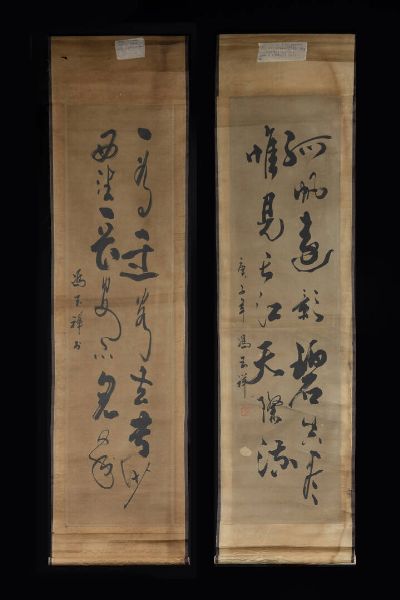 孤帆遠影碧空尽
惟見长江天際流
庚子年 馮玉祥
一為遷客去長沙
西望長安不見家
馮玉祥书